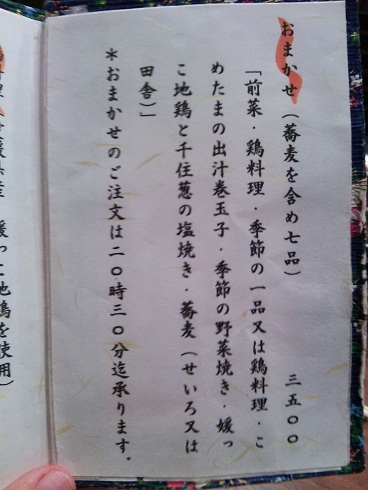 おまかせ（蕎麦を含め七品） 三五〇〇
「前菜・鶏料理・季節の一品又は鶏料理・こ
めたまの出汁巻玉子・季節の野菜焼き・媛っ
こ地鶏と千住葱の塩焼き・蕎麦（せいろ又は
田舎）」
＊おまかせのご注文は二〇時三〇分迄承ります。
媛っこ地鶏を使用）